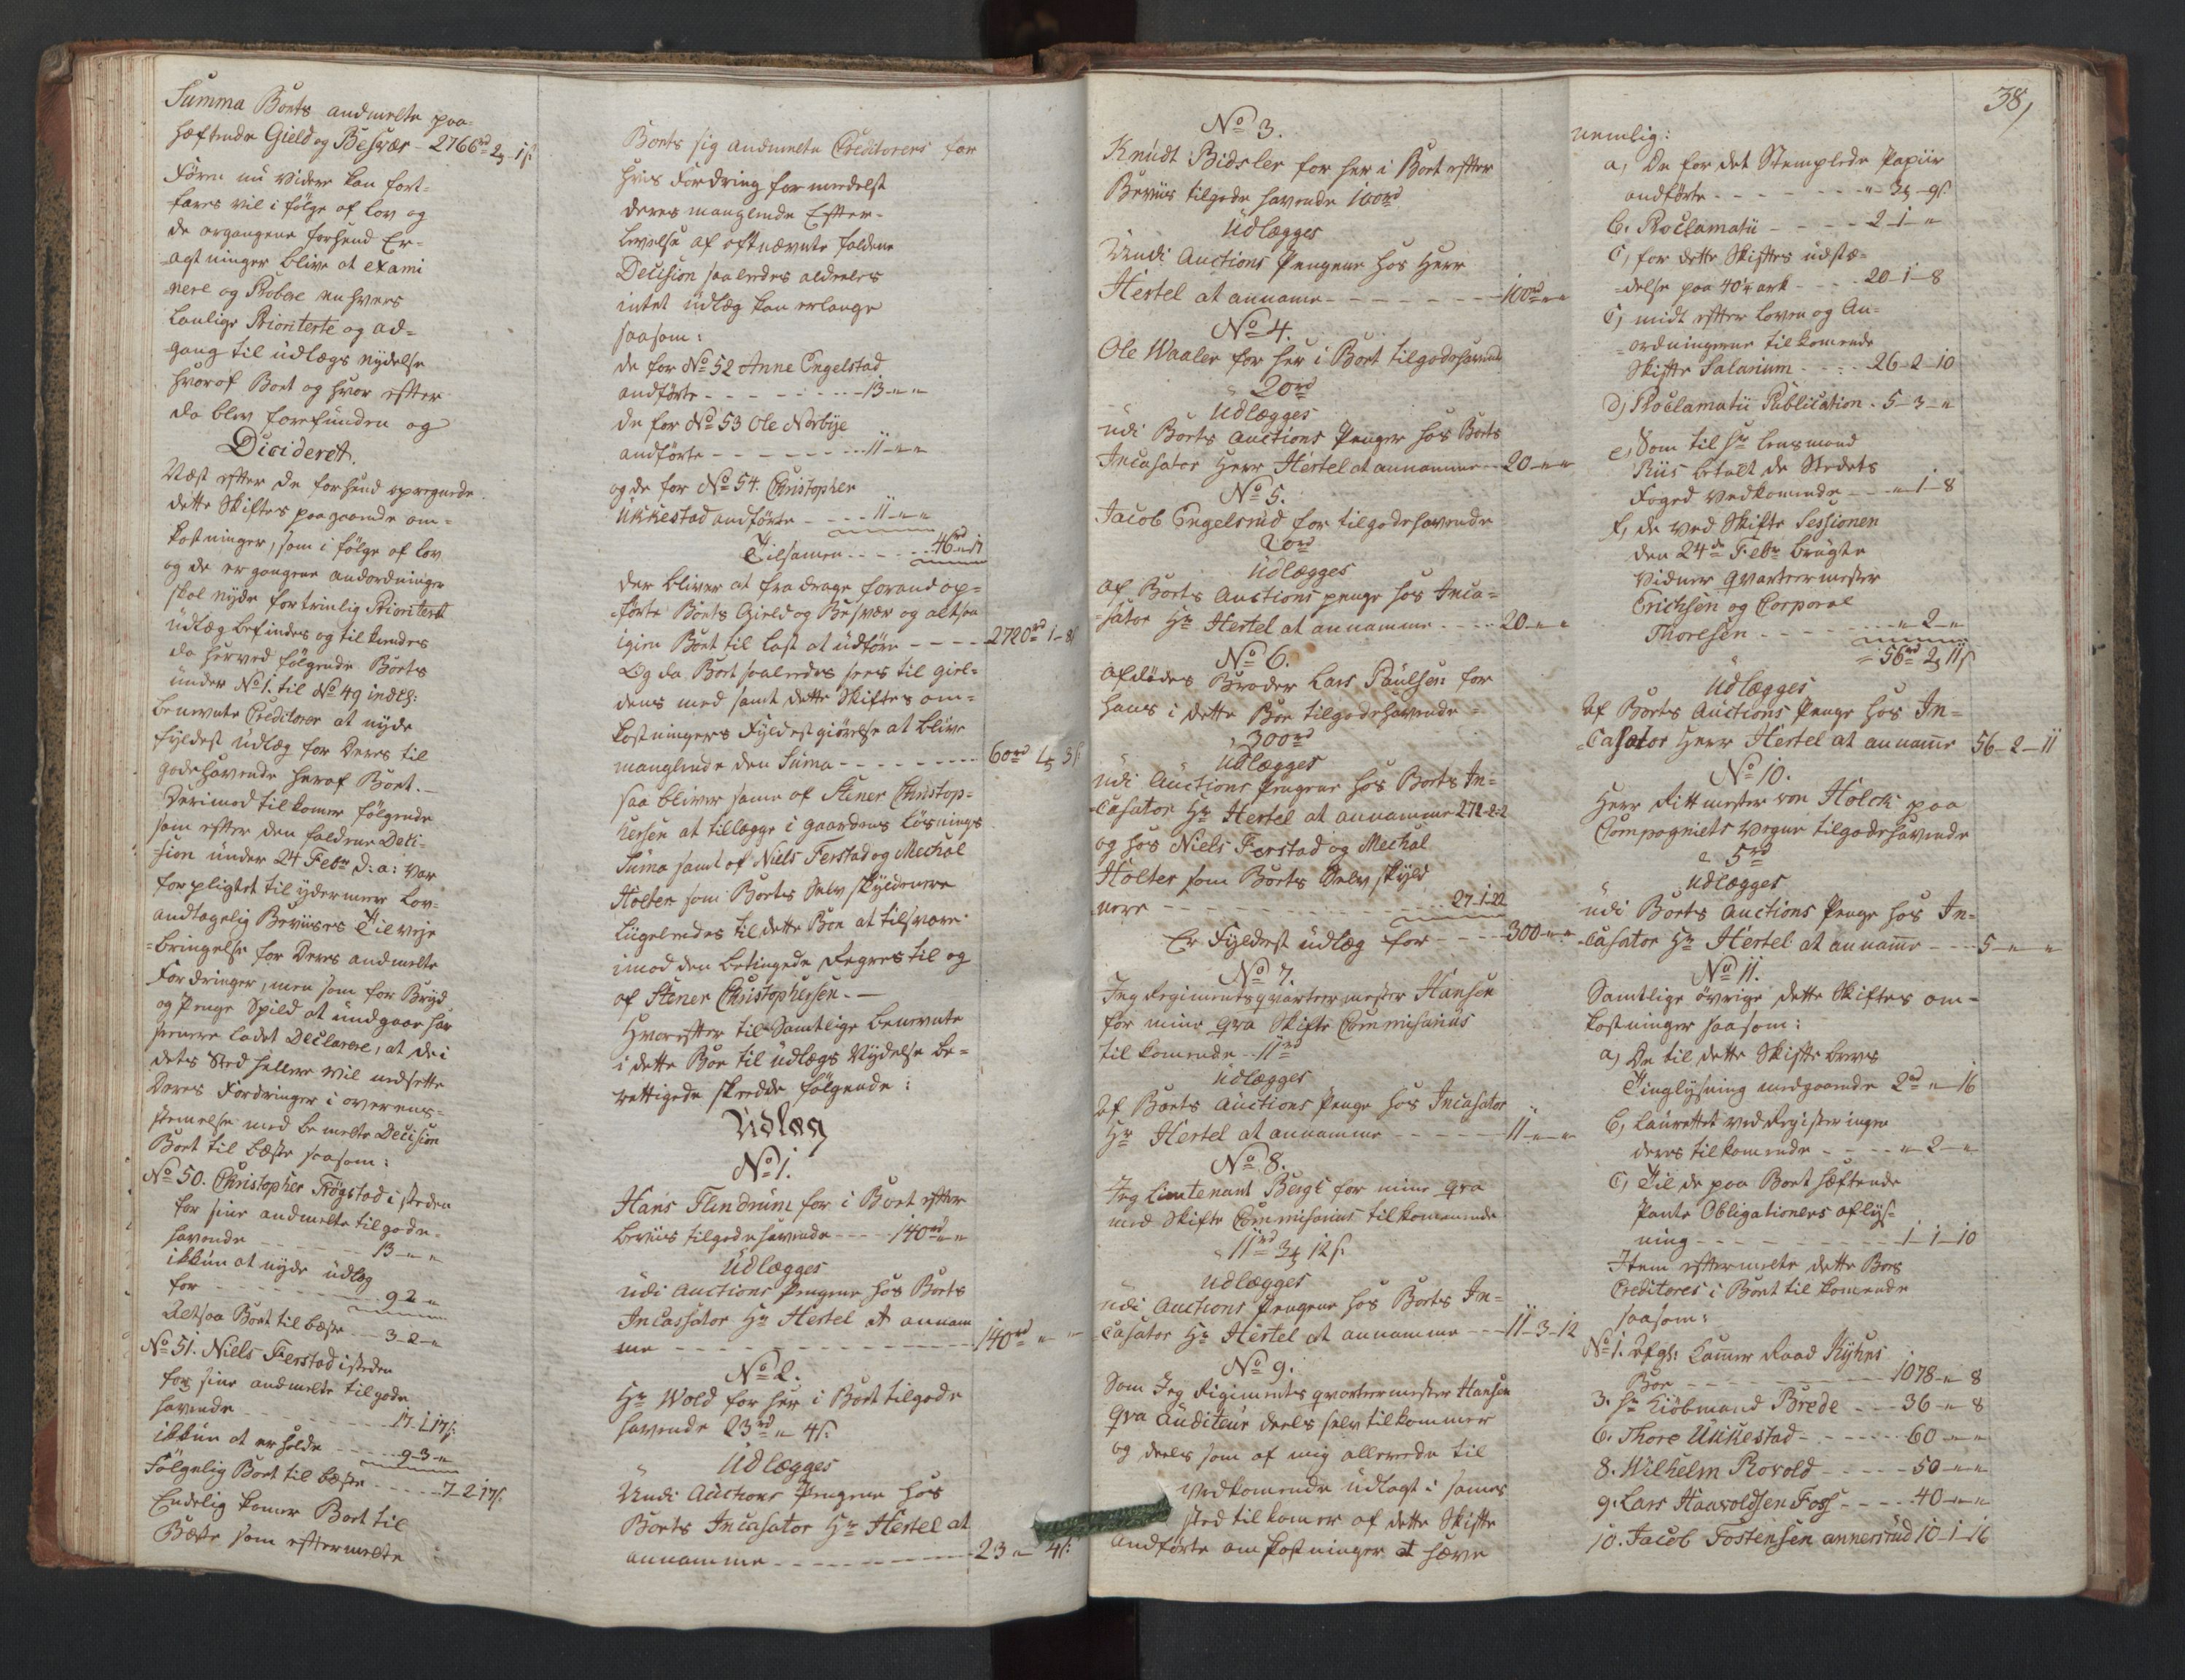 Summa Boets andmelte paa-
hæftende Gield og Besvær - 2766rd 2 1s:
Fören nu videre kan fort-
fares vil i følge af lov og
de ergangene forhend Er-
agtninger blive at exami
nere og Probere en hvers
lovlige Prioritete og ad-
gang til udlægs nydelse
hvoraf Boet og hvor efter
da blev forefunden og
Decideret.
Næst efter de forhend opregnede
dette Skiftes paagaaende om-
kostninger, som i følge af lov
og de ergangene andordninger
skal nyde fortrinlig Prioritets
udlæg befindes og tilkendes
da herved følgende Boets
under No 1. til No 49 incl:
benevnte Creditorer at nyde
fyldest udlæg for deres til
godehavende heraf Boet.-
Derimod tilkomer følgende
som efter den faldene Deci-
sion under 24 Febr d: a: var
forpligtet til ydermere lov-
andtagelig Beviises Tilveje
-bringelse for deres andmelte
Fordringer, men som for Bryd
og Penge Spild at undgaae har
senere ladet Declarere, at de i
dets Sted hellere vil nedsette
deres Fordringer i overens-
stemelse med bemelte Decision
Boet til beste saasom:
No 50. Christopher Frøgstad i steden
for sine andmelte tilgode-
havende - - - 13 - " - "
ikkun at nyde udlæg
for - - - 9 2 "
Altsaa Boet til beste - - 3 - 2 - "
No 51. Niels Ferstad i steden
for sine andmelte tilgode
havende - - - 17 - 1 17s:
ikkun at erholde - - - 9 - 3 - "
Følgelig Boet til beste - - - 7 - 2 17s:
Endelig komer Boet til
Beste som eftermelte
Boets sig andmelte Creditorers for
hvis Fordring formedelst
deres manglende Efter-
levelse af oftnævnte faldene
Decision saaledes aldeeles
intet udlæg kan erlange
saasom:
de for No 52 Anne Engelstad
andførte - - - 13 - " - "
de for No 53 Ole Norbye
andførte - - - 11 - " - "
og de for No 54. Christopher
Ukkestad andførte - - - 11 - " - "
Tilsamen - - - 46rd " 17
der bliver at fradrage forand op-
-førte Boets Gield og Besvær og altsaa
igien Boet til last at udføre - - - 2720rd 1 - 8s
Og da Boet saaledes sees til giel-
dens med samt dette Skiftes om-
kostningers Fyldestgiørelse at blive
manglende den Suma - - - 60rd 4 3s:
saa bliver same af Stener Christop-
hersen at tillægge i gaardens Løsnings
Suma samt af Niels Ferstad og Mechal
Holter som Boets Selv skyldenere
ligeledes til dette Boe at tilsvare
imod den betingede Regres til og
af Stener Christophersen.-
Hvorefter til Samtlige benevnte
i dette Boe til udlægs Nydelse be-
rettigede skedde følgende:
Udlæg
No 1.
Hans Flindrum for i Boet efter
beviis tilgodehavende - - - 140rd " "
Udlægges
udi Auctions Pengene hos Boets
Incassator Hr Hertel at annam
me - - - 140rd " "
No 2.
Hr Wold for her i Boet tilgode
havende 23rd " 4s:
Udlægges
Uudi Auctions Pengene hos
Boets Incasator Hr Hertel at
annamme - - - 23 " 4s:
No 3.
Knudt Bidsler for her i Boet efter
Beviis tilgode havende 100rd
Udlægges
Uudi Auctions Pengene hos Herr
Hertel at anname - - - 100rd " "
No 4.
Ole Waaler for her i Boet tilgodehavende
20rd
Udlægges
udi Boets Auctions Penger hos Boets
Incasator Herr Hertel at annamme - - 20 - " - "
No 5.
Jacob Engelsrud for tilgodehavende
20rd
Udlægges
af Boets Auctions penge hos Inca-
-sator Hr Hertel at annamme - - - 20 - " - "
No 6.
Afdødes Broder Lars Paulsen for
hans i dette Boe tilgodehavende
300rd
Udlægges
udi Auctions Pengene hos Boets In-
-casator Hr Hertel at annamme 272-2-2
og hos Niels Ferstad og Mechal
Holter som Boets Selv skyld
nere - - - 27 - 1 - 22
Er Fyldest udlæg for - - - 300 - " - "
No 7.
Jeg Regimentsqvarteermester Hansen
for mine qva Skifte Commisarius
tilkomende - 11rd
Udlægges
Af Boets Auctions Penge hos Incasator
Hr Hertel at annamme - - - 11 - " - "
No 8.
Jeg Lieutenant Bergh for mine qva
med Skifte Commisarius tilkommende
11rd 3 12s:
Udlægges
udi Auctions Pengene hos Boets In-
casator Hr Hertel at annamme - - 11 - 3 - 12
No 9.
Som Jeg Regiments qvarteermester Hansen
qva Auditeur deels selv tilkommer
og deels som af mig allerede til
vedkomende udlagt i sames
sted tilkomer af dette Skifte
andførte omkostninger at hæve
38,
nemlig:
a, De for det Stemplede Papiir
andførte - - - " - 3 - 9s
b. Proclamatii - - - 2 - 1 - "
c, for dette Skiftes udstæ-
-delse paa 40 1/4 ark - - - 20 - 1 - 8
c, midt efter loven og An-
-ordningerne tilkomende
Skifte Salarium - - - 26 - 2 - 10
d, Proclamatii Publication - 5 - 3 - "
e, Som til Hr lensmand
Riis betalt de Stedets
Foged vedkomende - - " - 1 - 8
f, de ved Skifte Sessionen
den 24de Febr brugte
Vidner Qvarteermester
Erichsen og Corporal
Thoresen - - - " - 2 - "
56rd 2 11s
Udlægges
Af Boets Auctions Penge hos In-
-casator Herr Hertel at anname 56 - 2 - 11
No 10.
Herr Rittmester von Holck paa
Compagniets vegne tilgodehavende
5rd
Udlægges
udi Boets Auctions Penge hos In-
-casator Hr Hertel at anname - - - 5 - " - "
No 11.
Samtlige øvrige dette Skiftes om-
kostninger saasom:
a, De til dette Skifte breves
Tinglysning medgaaende 2rd " 16
b, Laurettet ved Registeringen
deres tilkomende - - - " - 2 - "
c, Til de paa Boet hæftende
Pante Obligationers aflys-
ning - - - 1 - 1 - 10
Item eftermelte dette Boes
Creditores i Boet tilkomende
saasom:
No 1. Afgl: Camer Raad Kyhns
Boe - - - 1078 - " 8
3. Hr Kiöbmand Brede - - - 36 - " 8
6. Thore Ukkestad - - - 60 - " - "
8. Wilhelm Rovold - - - 50 - " - "
9. Lars Haavoldsen Foss - - - 40 - " - "
10. Jacob Tostensen annerstud 10 - 1 - 16